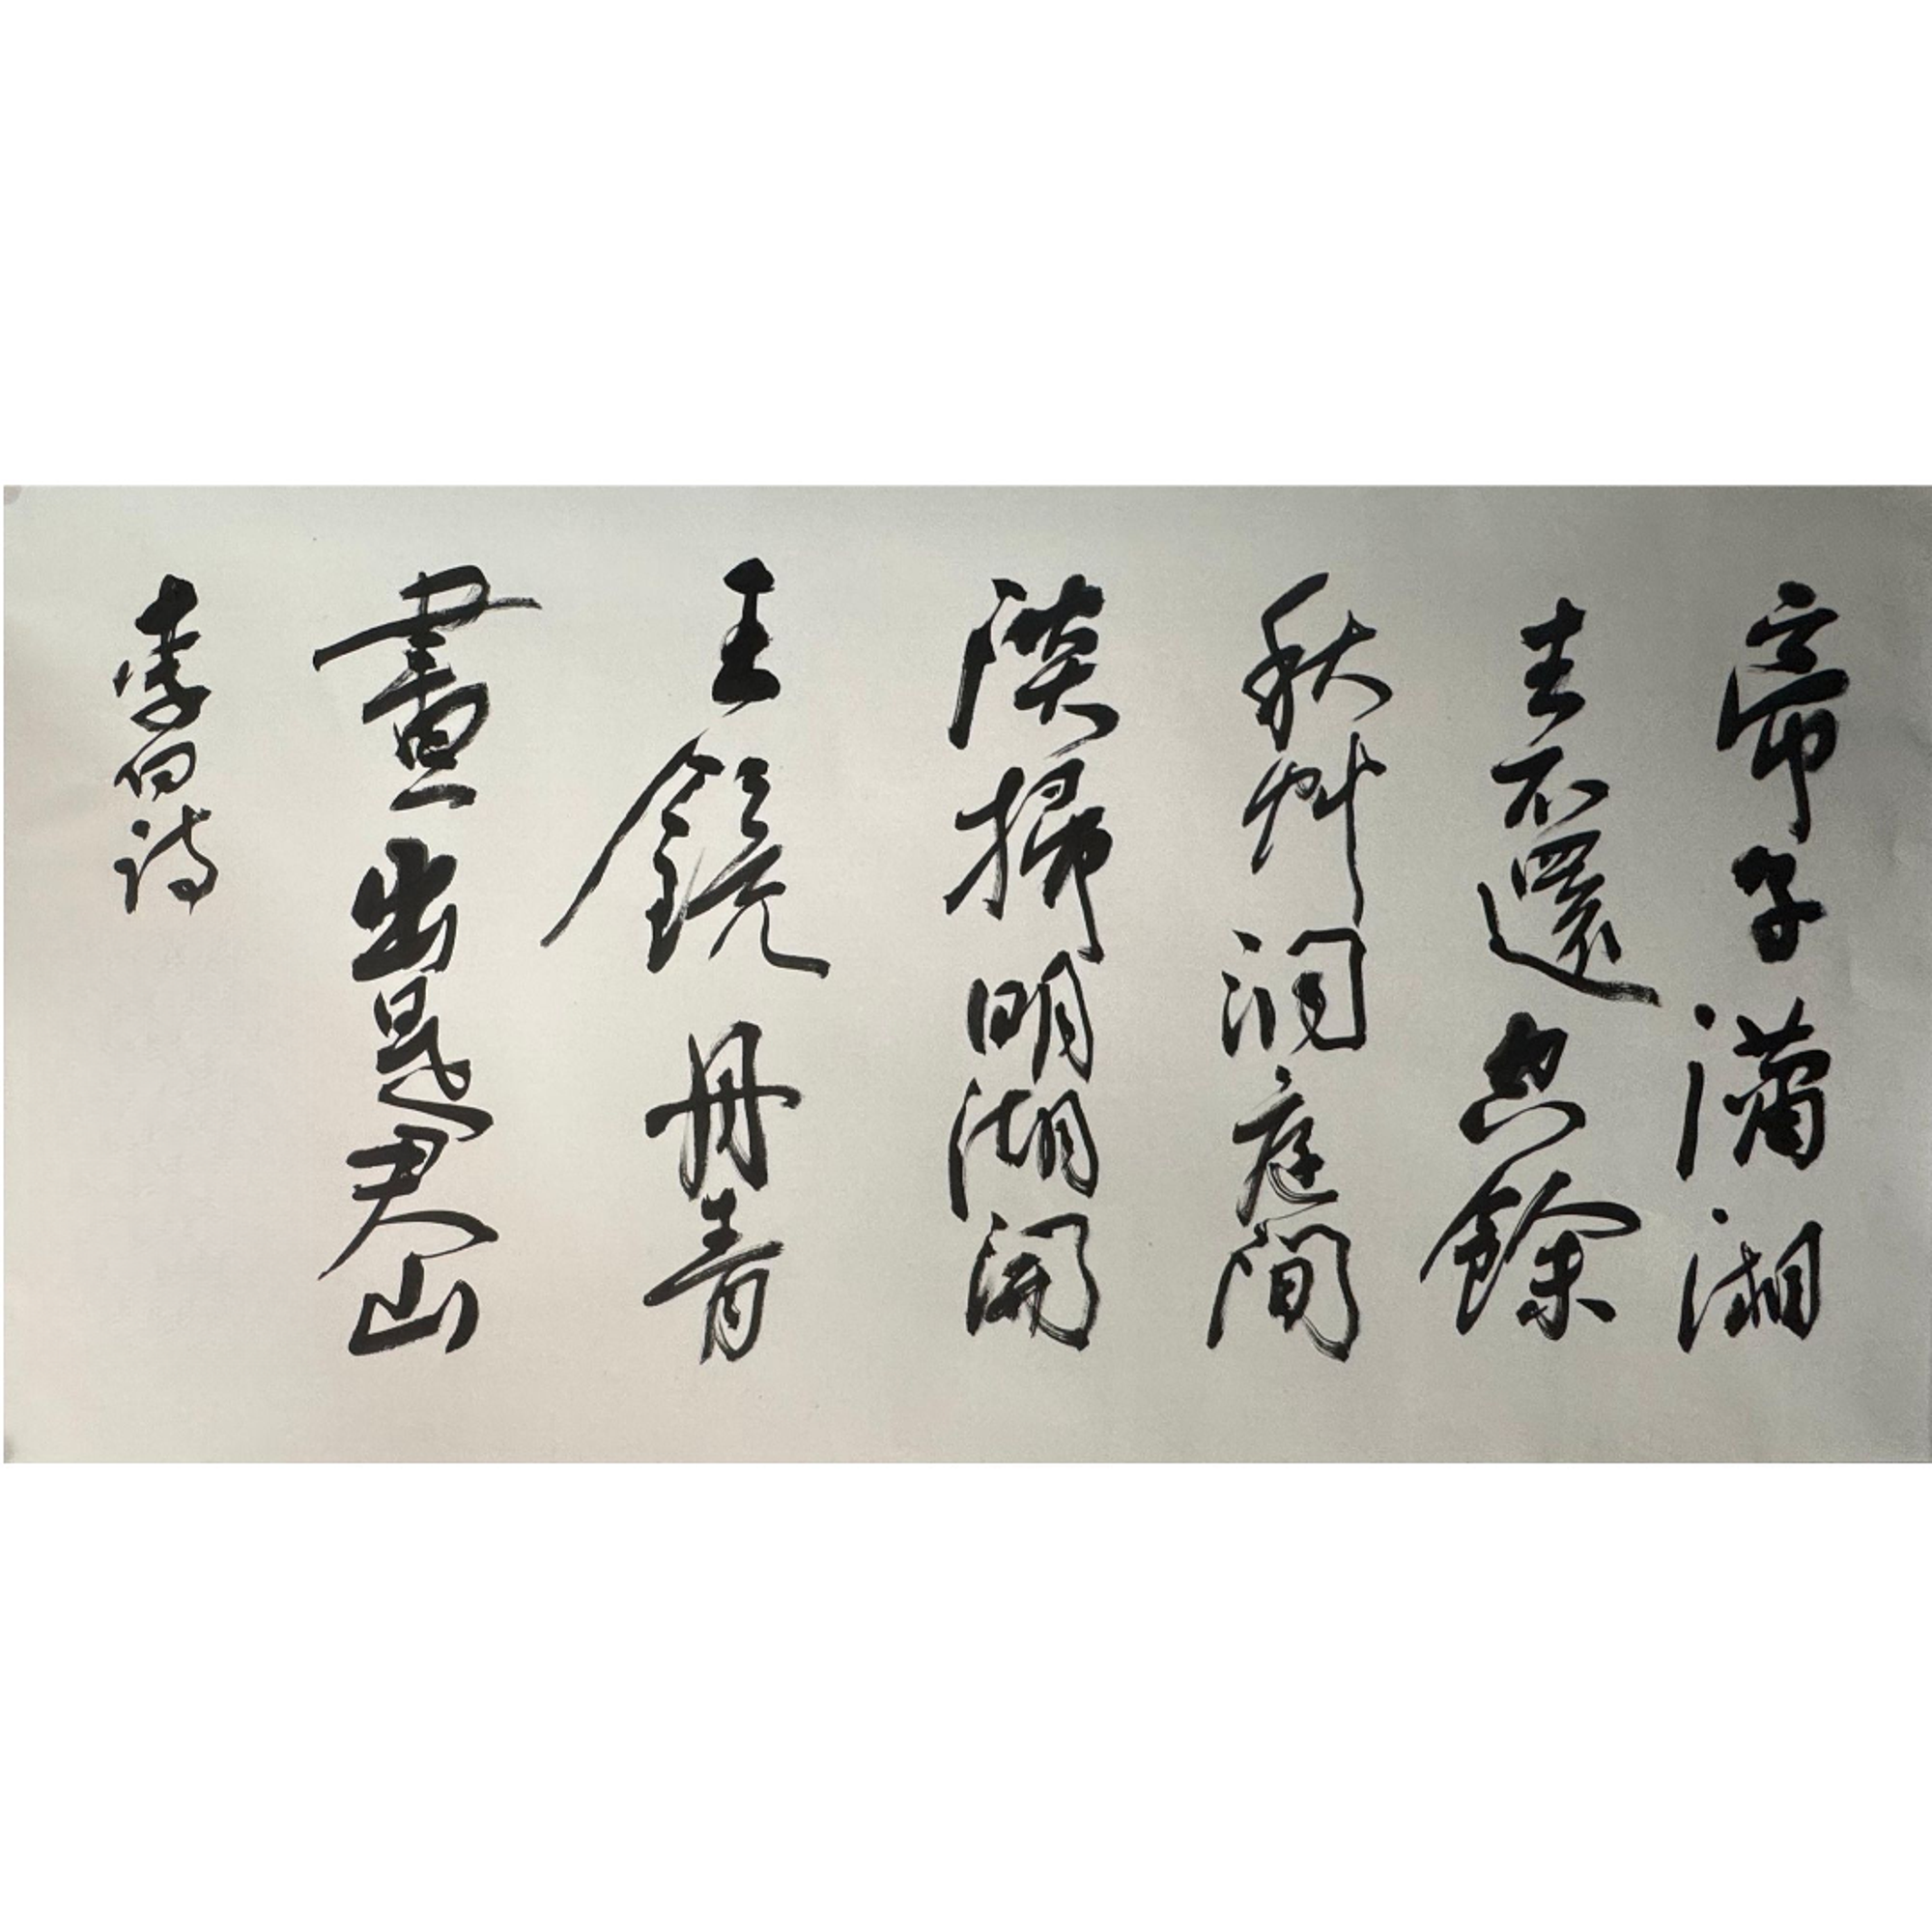 帝子瀟湘
去不還空餘
秋艸洞庭間
淡掃明湖開
玉鏡丹青
畫出是君山
李白詩